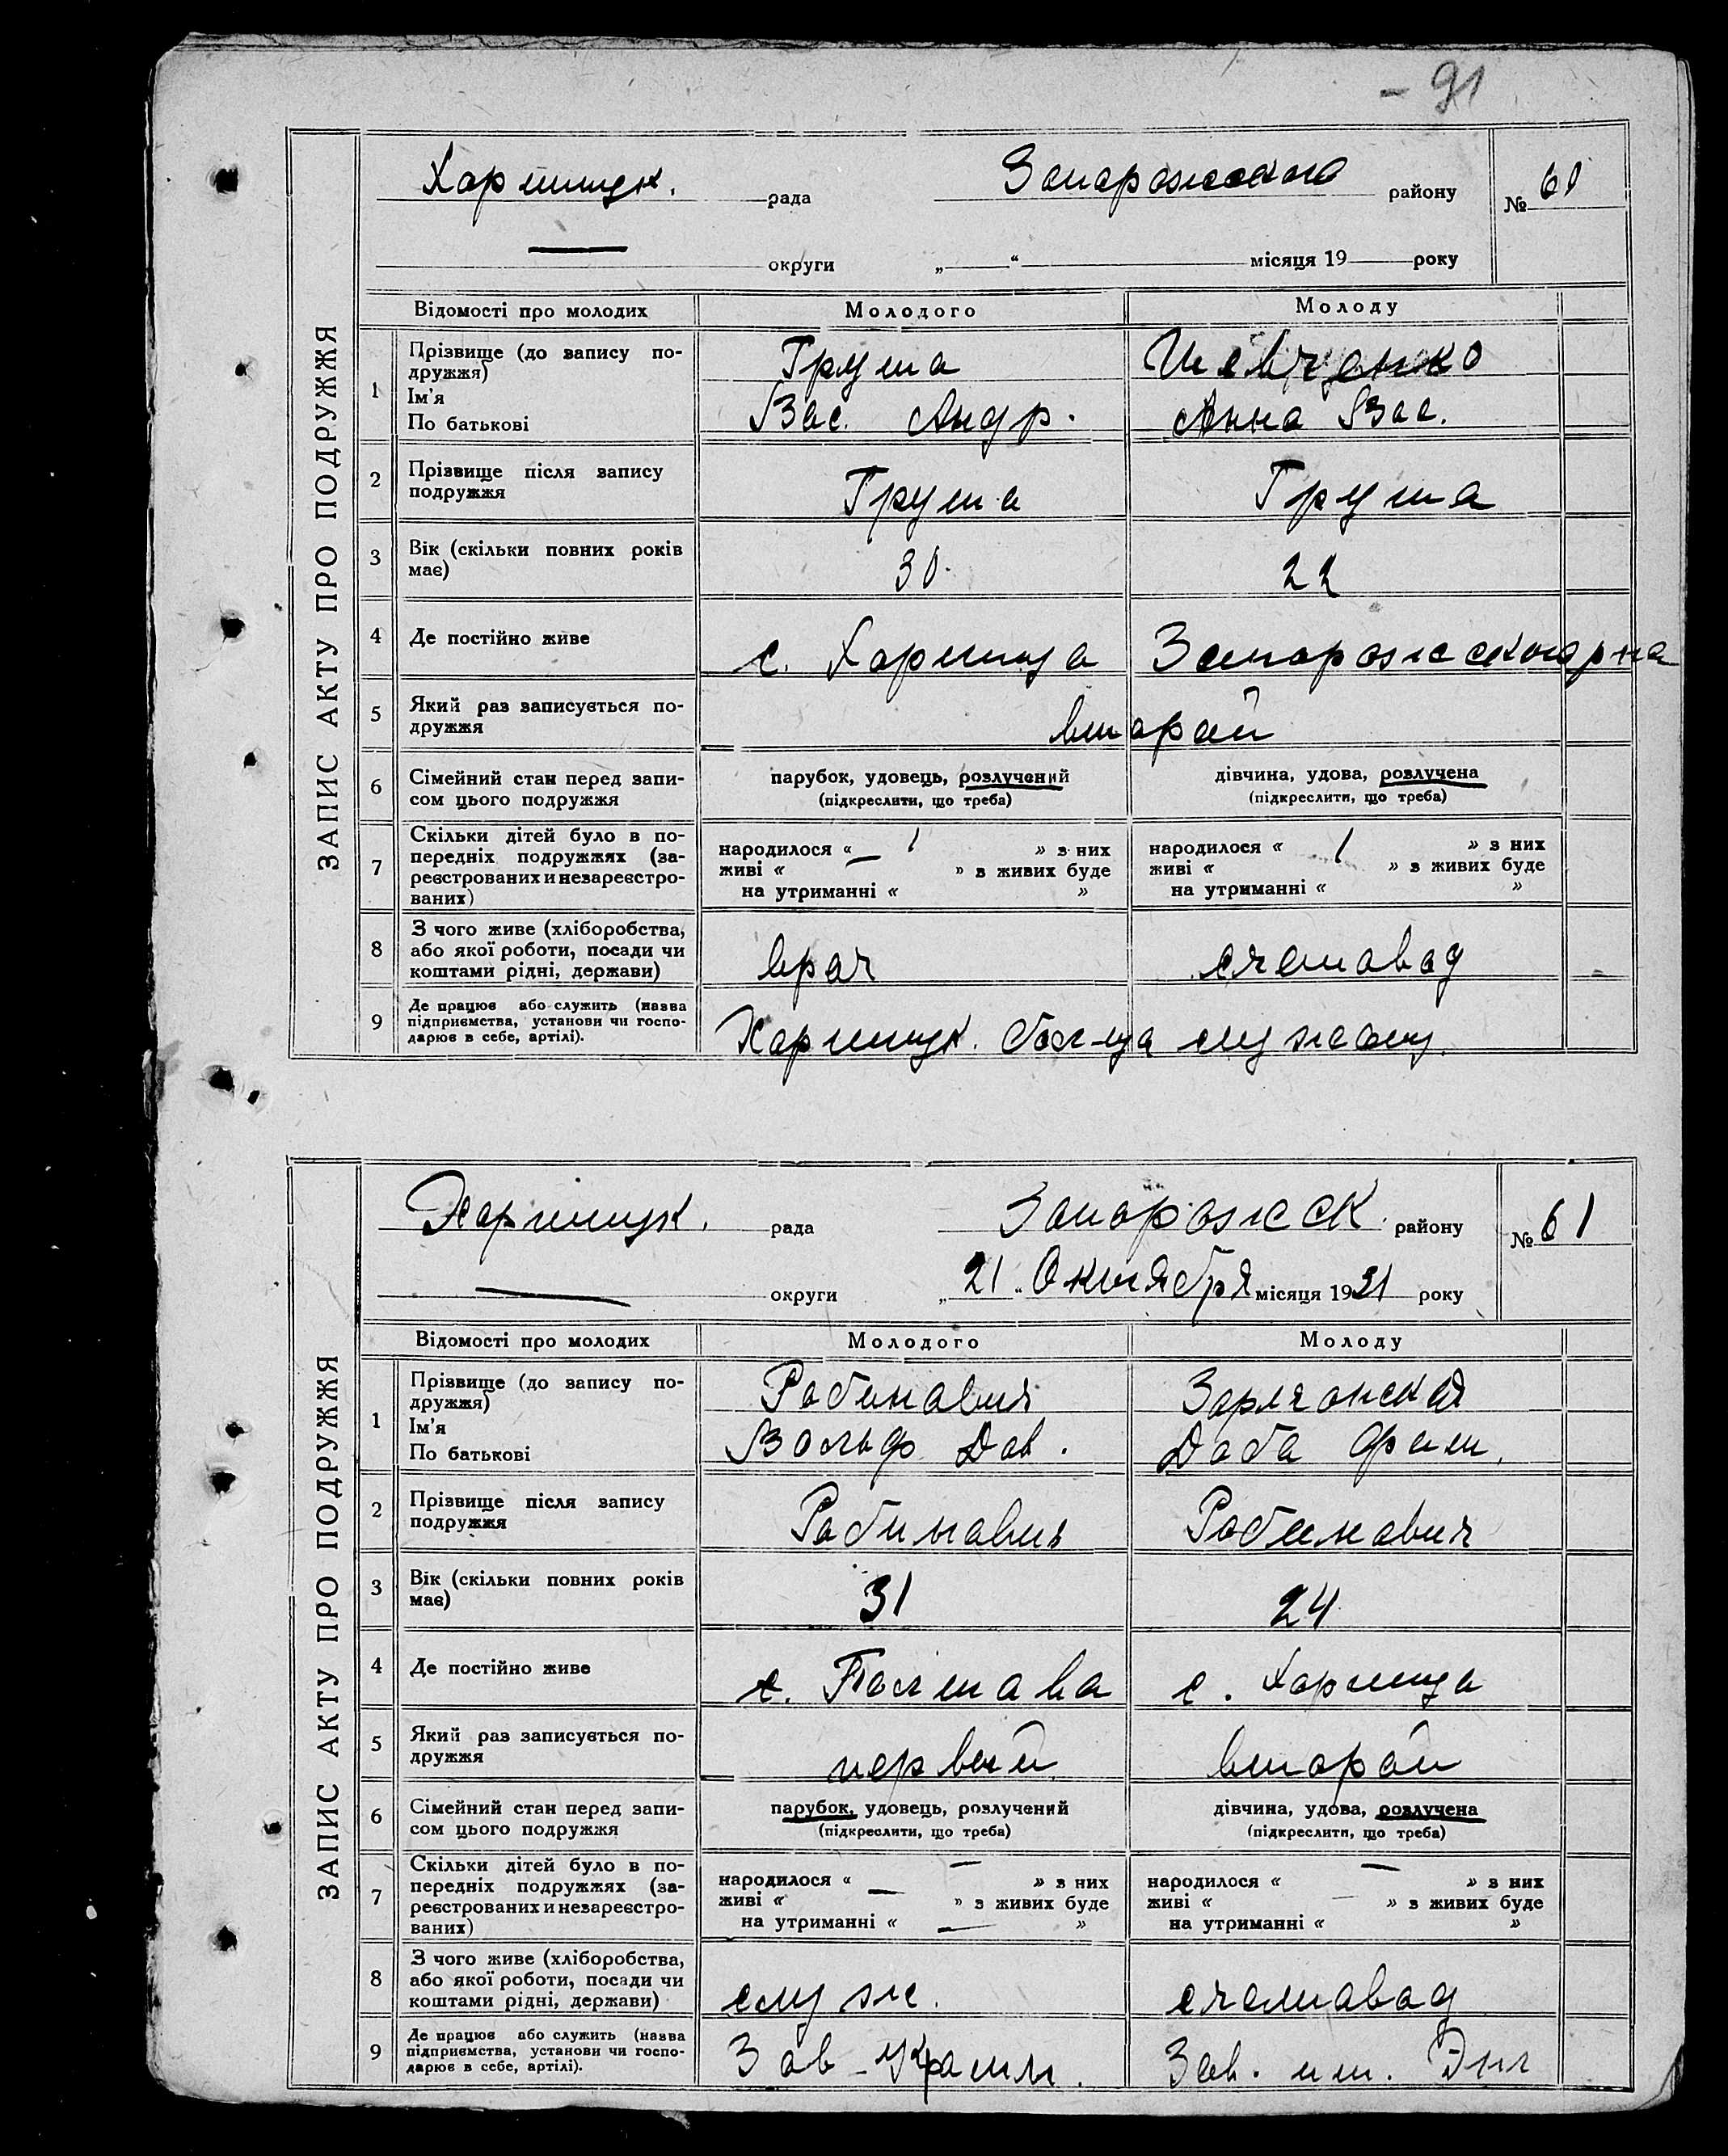 - 91
ЗАПИС АКТУ ПРО ПОДРУЖЖЯ
Хортицк. рада Запорожского району № 60
— округи „ “ місяця 19 року
Відомості про молодих Молодого Молоду
1 Прізвище (до запису по-
дружжя) Груша Шевченко
Ім'я
По батькові Вас. Андр. Анна Вас.
2 Прізвище після запису
подружжя Груша Груша
3 Вік (скільки повних років
має) 30. 22
4 Де постійно живе с. Хортица
5 Який раз записується по-
дружжя вторай
6 Сімейний стан перед запи-
сом цього подружжя парубок, удовець, розлучений дівчина, удова, розлучена
(підкреслити, що треба) (підкреслити, що треба)
7 Скільки дітей було в по-
передніх подружжях (за-
реєстрованих и незареєстро-
ваних)
народилося « » з них народилося « » з них
живі « » з живих буде живі « » з живих буде
на утриманні « » на утриманні « »
8 З чого живе (хліборобства,
або якої роботи, посади чи
коштами рідні, держави) врач счетовод
9 Де працює або служить (назва
підприємства, установи чи госпо-
дарює в себе, артілі). Хортицк. бол-ца
ЗАПИС АКТУ ПРО ПОДРУЖЖЯ
Хортицк. рада Запорожск. району № 61
— округи „21“ Октября місяця 1931 року
Відомості про молодих Молодого Молоду
1 Прізвище (до запису по-
дружжя) Рабинавич
Ім'я
По батькові Вольф Дав. Даба
2 Прізвище після запису
подружжя Рабинавич Рабинавич
3 Вік (скільки повних років
має) 31 24
4 Де постійно живе с. Палтава с. Хортица
5 Який раз записується по-
дружжя первый вторай
6 Сімейний стан перед запи-
сом цього подружжя парубок, удовець, розлучений дівчина, удова, розлучена
(підкреслити, що треба) (підкреслити, що треба)
7 Скільки дітей було в по-
передніх подружжях (за-
реєстрованих и незареєстро-
ваних)
народилося « — » з них народилося « — » з них
живі « — » з живих буде живі « — » з живих буде
на утриманні « — » на утриманні « »
8 З чого живе (хліборобства,
або якої роботи, посади чи
коштами рідні, держави) служ. счетавод
9 Де працює або служить (назва
підприємства, установи чи госпо-
дарює в себе, артілі). Зав. им. Энг